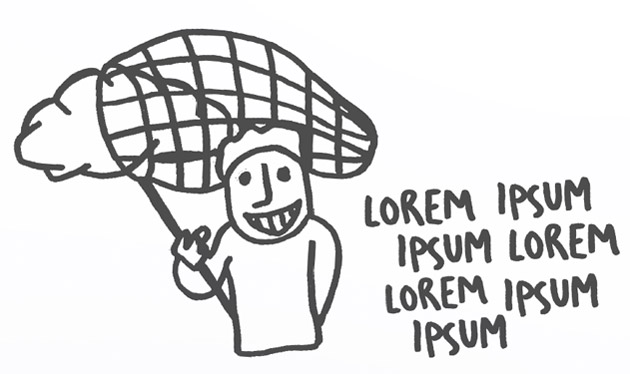 LOREM IPSUM
IPSUM LOREM
LOREM IPSUM
IPSUM